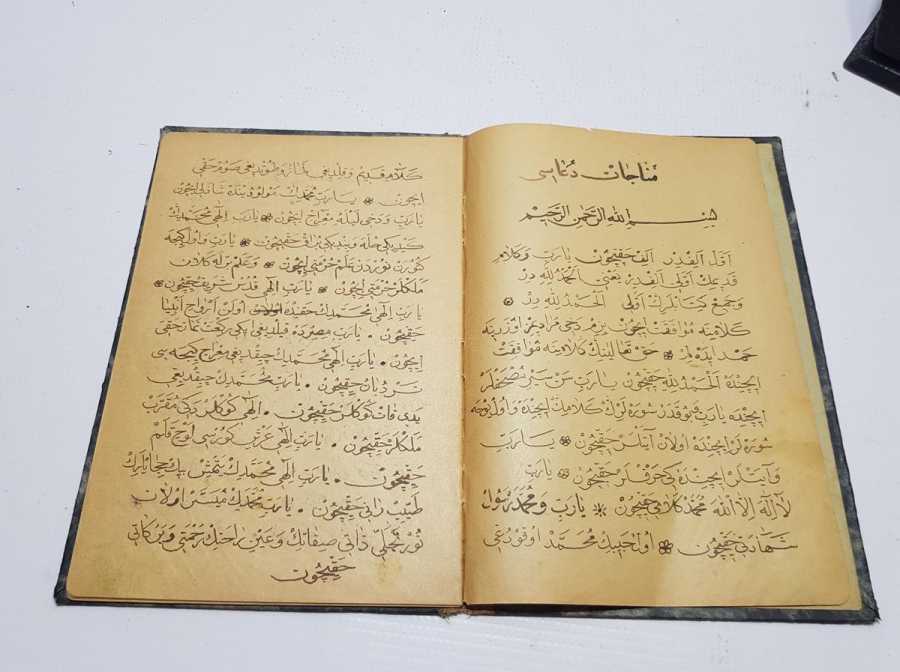 مناجات دعاسی
بسم الله الرحمن الرحیم
اول الفدر الف حقیچون یارب وکلام
قدیمك اولی الفدر یعنی الحمد لله در
وجمیع کتابلرك اولی الحمد لله در
کلامینه موافقت ایچون بزم دخی مرادمز اوزرینه
حمد ایده لم حق تعالینك کلامینه موافقت
ایچنده الحمد لله حقیچون یارب سن سیر مصحفلر
ایچنده یارب قنو قدر سوره لرك کلامك ایچنده واول یوجه
سوره لر ایچنده اولان آیتلر حقیچون یارب
وآیتلر ایچنده کی حرفلر حقیچون یارب
لا اله الا الله محمد کلامی حقیچون یارب ومحمد رسول
شهادتی حقیچون اول حبیبك محمد اوقودغی
کلام قدیم وقلدیغی نماز وطوتدیغی صوم حقی
ایچون یارب محمدك مولودنده شافلر ایچون
یارب ودخی لیله معراج ایچون یارب الهی محمدك
کیدیکی حله وبندیکی براق حقیچون یارب واول کیجه
کتورن نوردن علم حرمتی ایچون وعلم برله کلان
ملکلر حرمتی ایچون یارب الهی قدس شریف حقیچون
یارب الهی محمدك حقنده اولن ارواح انبیا
حقیچون یارب مصروده قیلدیغی ایکی رکعت نماز حقی
ایچون یارب الهی محمدك چیقدیغی معراج کیجه سی
نردبان حقیچون یارب محمدك چیقدیغی
یدی قات کوکلر حقیچون الهی کوکلرده کی مقرب
ملکلر حقیچون یارب الهی عرش کورسی لوح قلم
حقیچون یارب الهی محمدك یتمش بیك حجابلرك
طیبت رابی حقیچون یارب محمدك میسر اولان
نور تجلی ذاتی صفاتك وعین راحتك رحمتی وبرکاتی
حقیچون